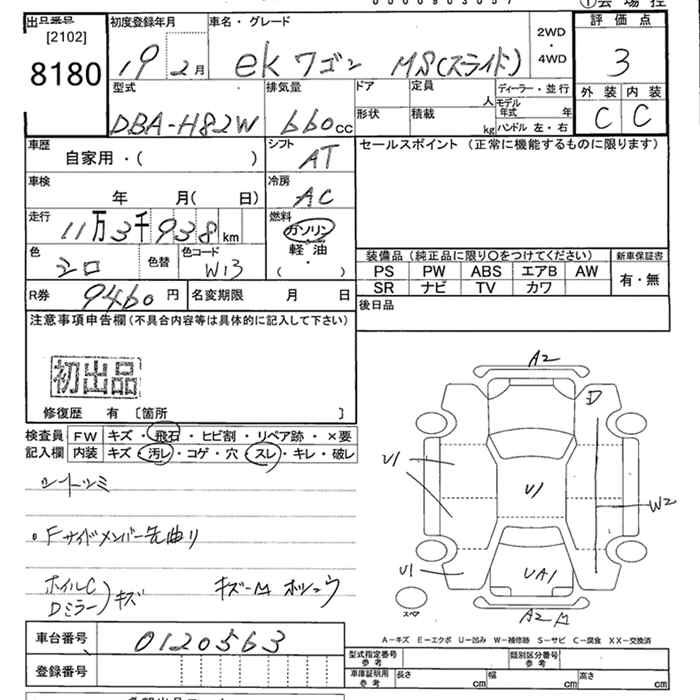 出品番号
[2102]
8180
初度登録年月
19 2月
車名・グレード
ekワゴン MS(スライド)
2WD
・
4WD
評価点
3
外装 内装
C C
型式
DBA-H82W
排気量
660cc
ドア
定員
人
形状
積載
kg
ディーラー・並行
モデル年式 年
ハンドル 左・右
車歴
自家用・( )
シフト
AT
セールスポイント (正常に機能するものに限ります)
車検
年 月( 日)
冷房
AC
走行
11万3千938km
燃料
ガソリン
軽油
・
( )
色
シロ
色替
色コード
W13
装備品 (純正品に限り○をつけてください)
新車保証書
PS PW ABS エアB AW
有・無
SR ナビ TV カワ
R券
9460円
名変期限 月 日
後日品
注意事項申告欄 (不具合内容等は具体的に記入して下さい)
初出品
修復歴 有 〔箇所 〕
検査員
記入欄
FW キズ・飛石・ヒビ割・リペア跡・×要
内装 キズ・汚レ・コゲ・穴・スレ・キレ・破レ
シートシミ
・Fサイドメンバー先曲り
ホイルC
Dミラー)キズ
A2
D
U1
U1
W2
U1
UA1
スペア
A2
A-キズ E-エクボ U-凹み W-補修跡 S-サビ C-腐食 XX-交換済
車台番号
0120563
登録番号
型式指定番号
参考
類別区分番号
参考
車庫証明用
参考
長さ cm
幅 cm
高さ cm